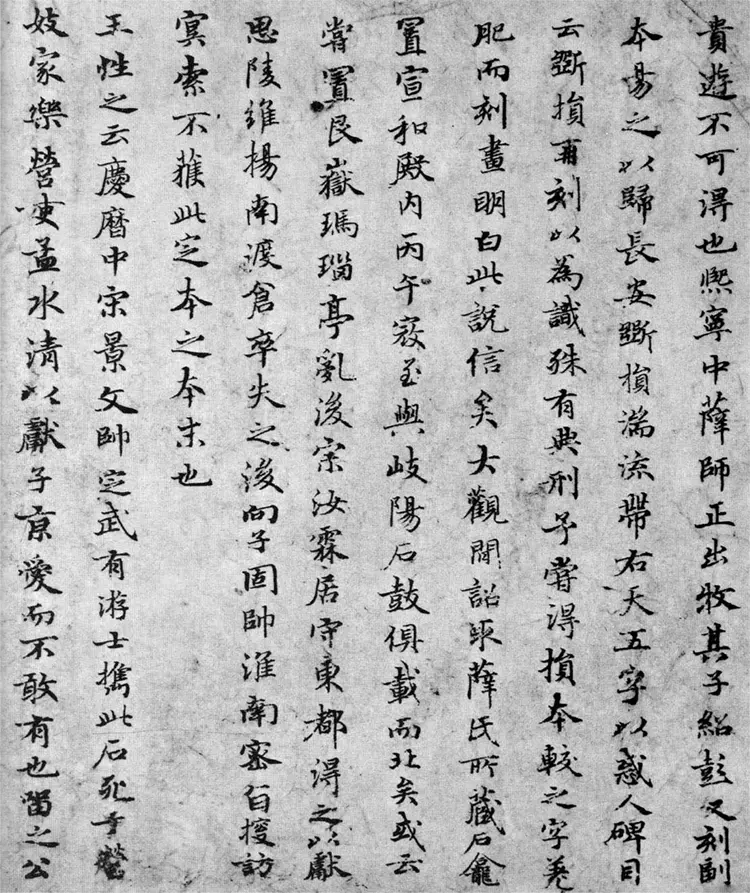 貴遊不可得也熙寧中薛師正出牧其子紹彭又刻副
本易之以歸長安斲損湍流帶右天五字以惑人碑目
云斲損再刻以為識殊有典刑予嘗得損本較之字差
肥而刻畫明白此說信矣大觀間詔取薛氏所藏石龕
置宣和殿內丙午寇至與岐陽石鼓俱載而北矣或云
嘗置艮嶽瑪瑙亭亂後宗汝霖居守東都得之以獻
思陵維揚南渡倉卒失之後向子固帥淮南密旨搜訪
冥索不獲此定本之本末也
王性之云慶曆中宋景文帥定武有游士攜此石死于營
妓家樂營吏孟水清以獻子京愛而不敢有也留之公